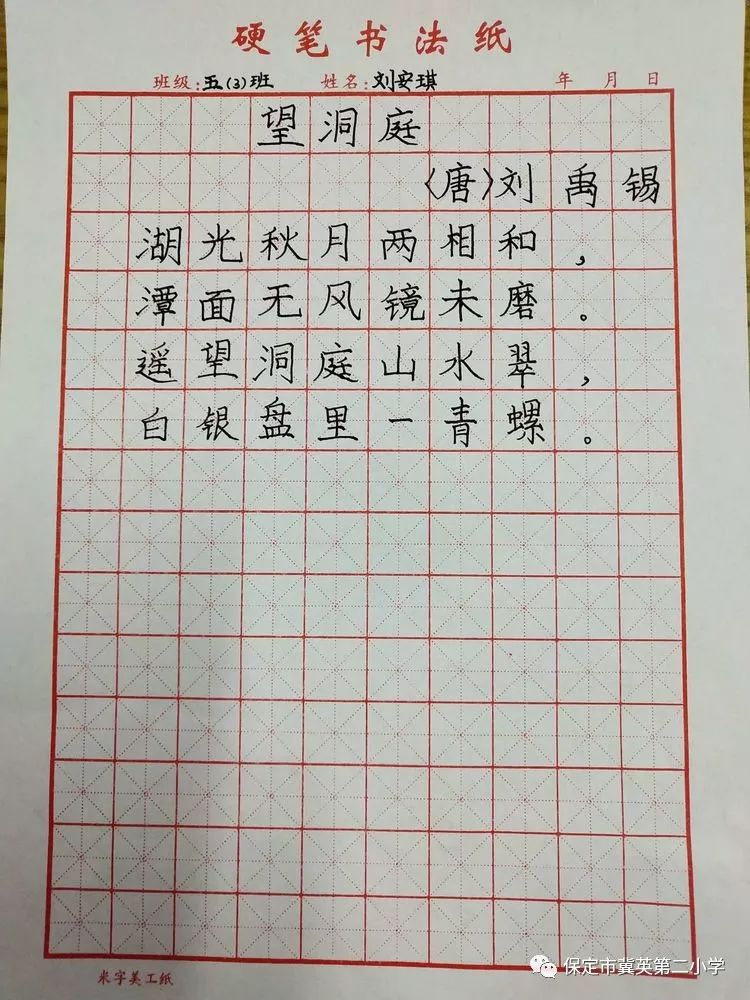 硬笔书法纸
班级:五(3)班 姓名:刘安琪 年 月 日
望洞庭
〈唐〉刘禹锡
湖光秋月两相和，
潭面无风镜未磨。
遥望洞庭山水翠，
白银盘里一青螺。
米字美工纸
保定市冀英第二小学